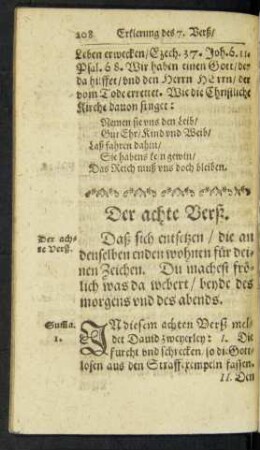 208 Erklerung des 7. Verß/
Leben erwecken/ Ezech. 37. Joh. 6. 11.
Psal. 68. Wir haben einen Gott/ der
da hilfft/ vnd den Herrn HErrn/ der
vom Tode errettet. Wie die Christliche
Kirche dauon singet:
Nemen sie vns den Leib/
Gut Ehr/ Kind vnd Weib/
Laß fahren dahin/
Sie habens kein gewin/
Das Reich muß vns doch bleiben.
Der achte Verß.
Der ach-
te Verß.
Daß sich entsetzen/ die an
denselben enden wohnen für dei-
nen Zeichen. Du machest frö-
lich was da webert/ beyde des
morgens vnd des abends.
Summa.
1.
IN diesem achten Verß mel-
det Dauid zweyerley: I. Die
furcht vnd schrecken/ so die Gott-
losen aus den Straff exempeln fassen.
II. Den